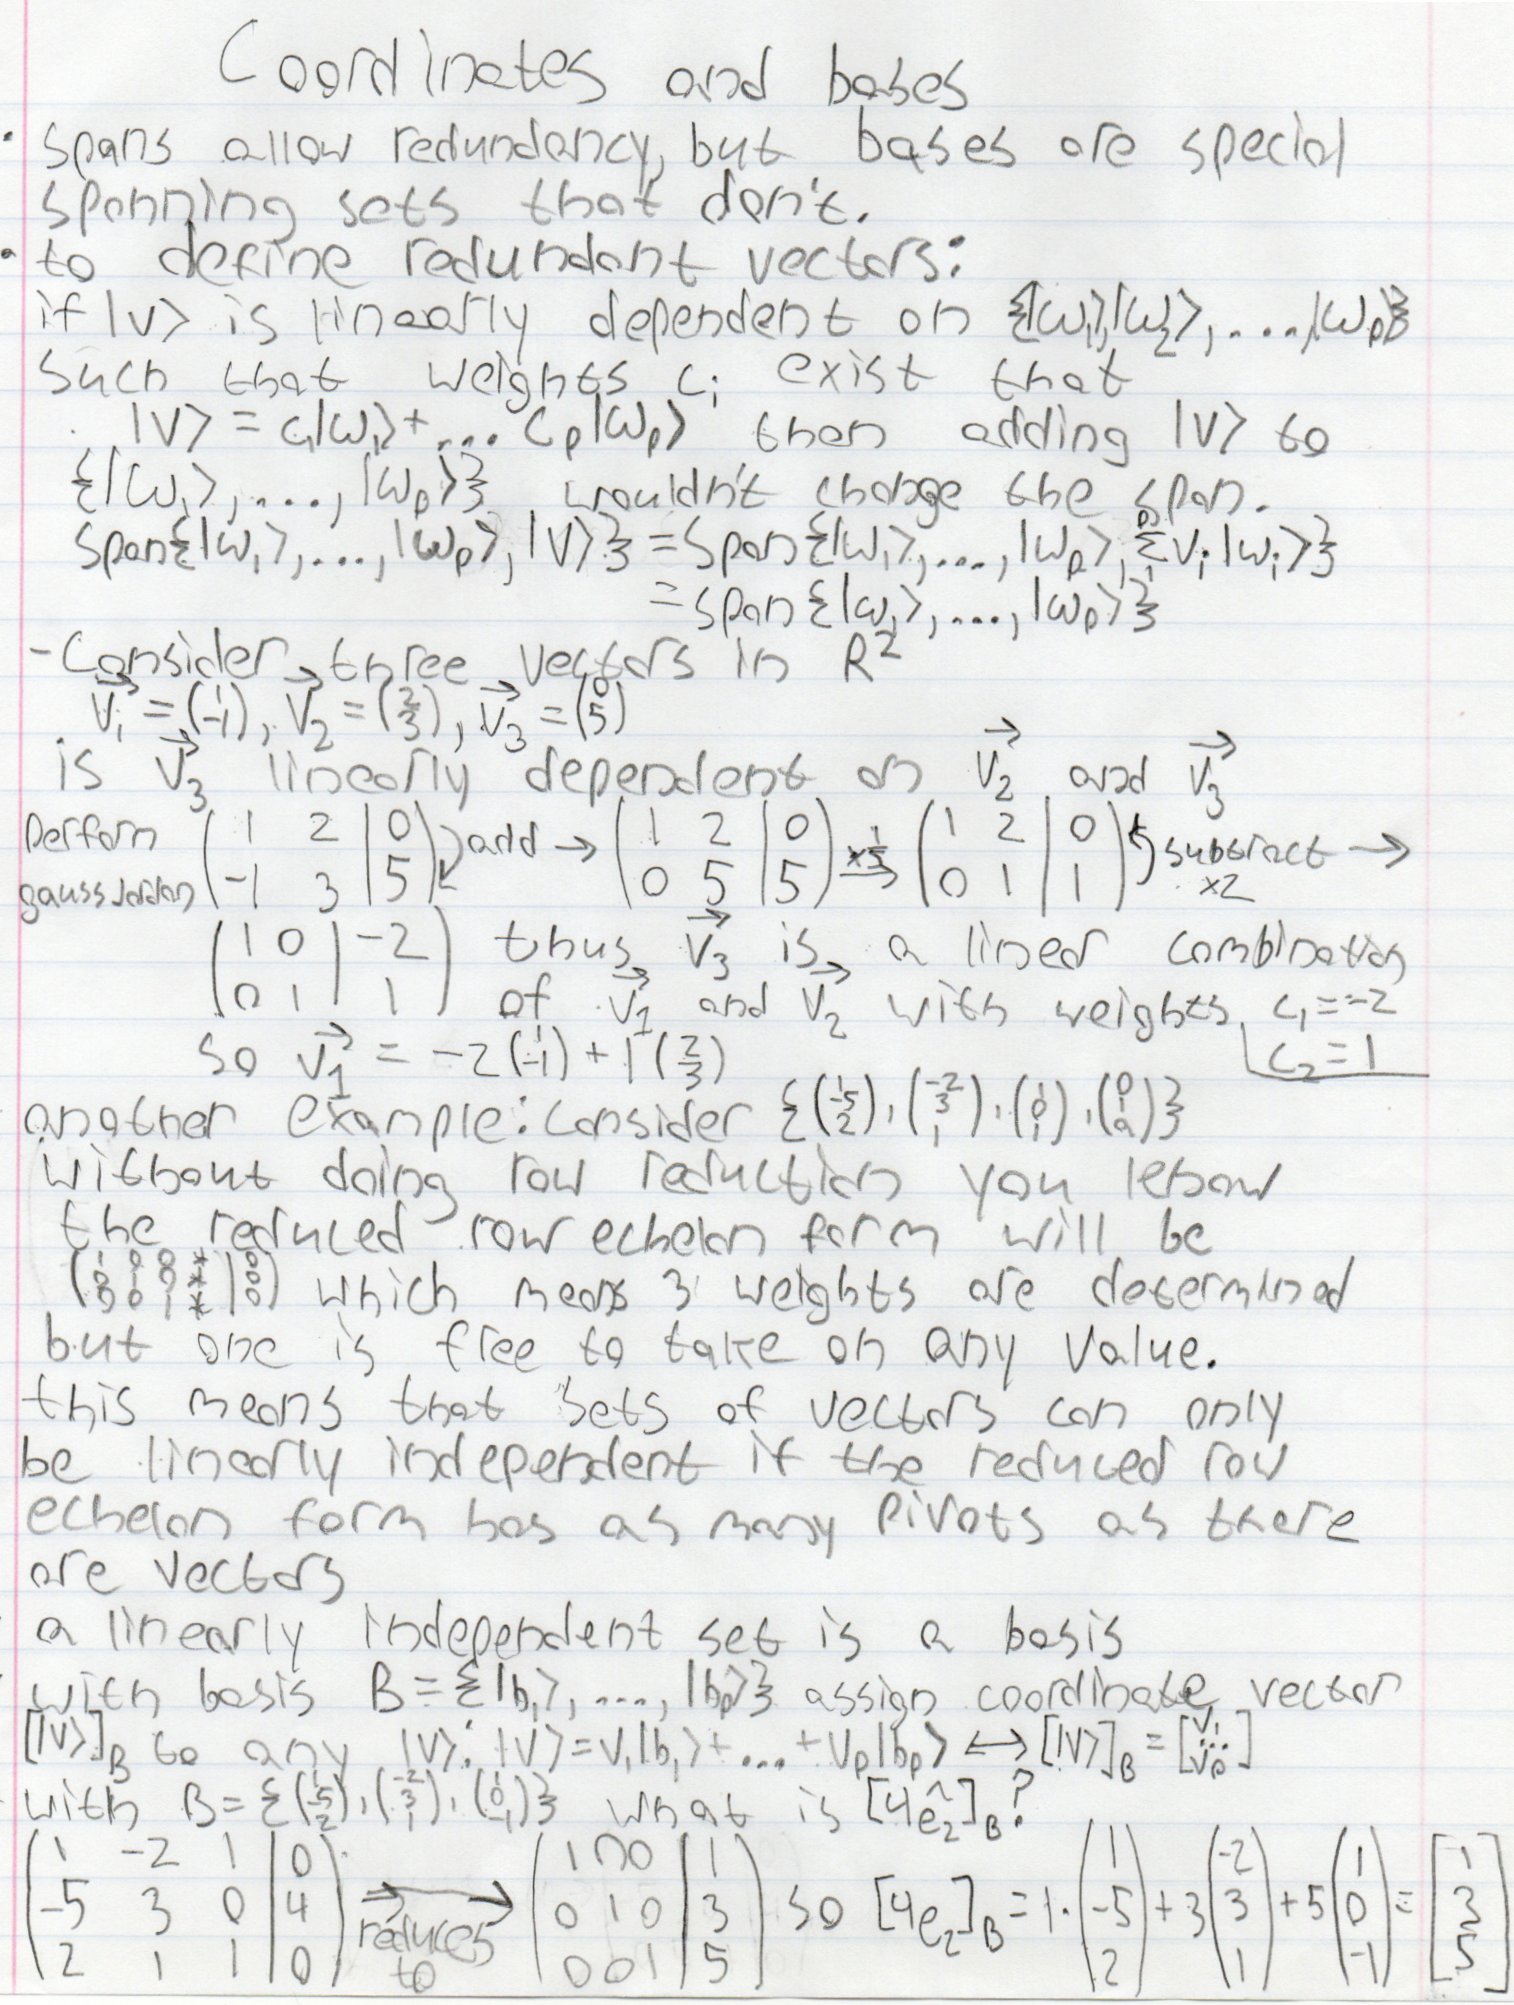 Coordinates and bases
• spans allow redundancy, but bases are special
spanning sets that don't.
• to define redundant vectors:
if |v> is linearly dependent on {|w₁>,|w₂>,....,|wₚ>}
such that weights cᵢ exist that
|v> = c₁|w₁>+... cₚ|wₚ> then adding |v> to
{|w₁>,...,|wₚ>} wouldn't change the span.
span{|w₁>,...,|wₚ>,|v>} = span{|w₁>,...,|wₚ>, Σᵖ₁ vᵢ|wᵢ>}
= span{|w₁>,...,|wₚ>}
- Consider three vectors in R²
v⃗₁ = (1 -1), v⃗₂ = (2 3), v⃗₃ = (0 5)
is v⃗₃ linearly dependent on v⃗₂ and v⃗₃
Perform gauss Jordan (1 2 | 0; -1 3 | 5) add → (1 2 | 0; 0 5 | 5) ×1/5 → (1 2 | 0; 0 1 | 1) subtract ×2 →
(1 0 | -2; 0 1 | 1) thus v⃗₃ is a linear combination
of v⃗₁ and v⃗₂ with weights c₁=-2
c₂=1
so v⃗₁ = -2(1 -1) + 1(2 3)
another example: consider {(1 -5 2), (-2 3 1), (1 0 1), (0 1 a)}
without doing row reduction you know
the reduced row echelon form will be
(1 0 0 * | 0; 0 1 0 * | 0; 0 0 1 * | 0) which means 3 weights are determined
but one is free to take on any value.
this means that sets of vectors can only
be linearly independent if the reduced row
echelon form has as many pivots as there
are vectors
a linearly independent set is a basis
with basis B={|b₁>,...,|bₚ>} assign coordinate vector
[|v>]_B to any |v>: |v>=v₁|b₁>+...+vₚ|bₚ> ↔ [|v>]_B = [v₁ ... vₚ]
with B={(1 -5 2), (-2 3 1), (1 0 -1)} what is [4ê₂]_B?
(1 -2 1 | 0; -5 3 0 | 4; 2 1 1 | 0) reduces to → (1 0 0 | 1; 0 1 0 | 3; 0 0 1 | 5) so [4e₂]_B = 1·(1 -5 2) + 3(-2 3 1) + 5(1 0 -1) = [1 3 5]